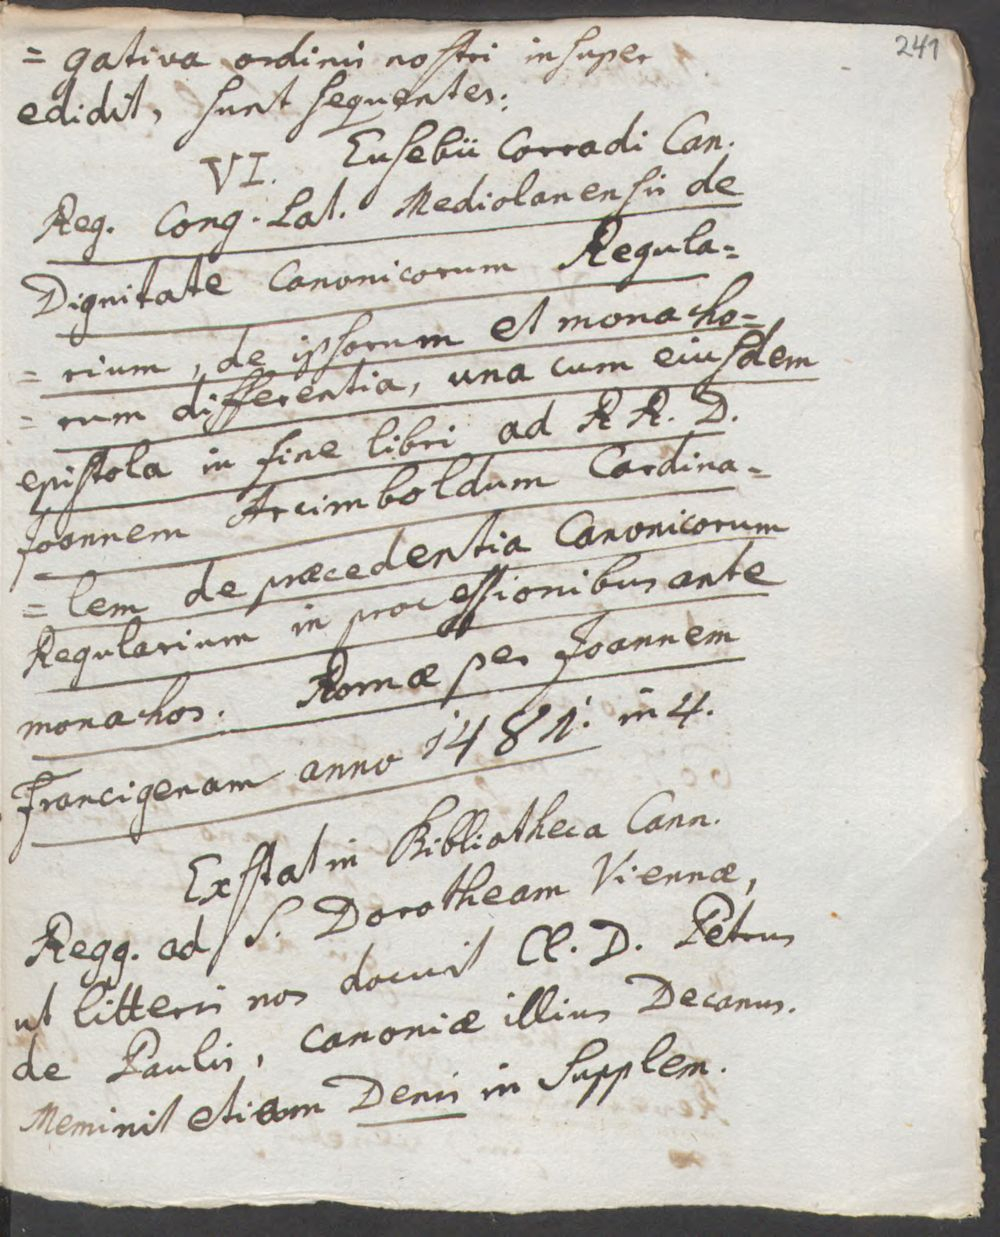 241
= gativa ordinis nostri insuper
edidit, sunt sequentes:
VI. Eusebii Corradi Can.
Reg. Cong. Lat. Mediolanensis de
Dignitate Canonicorum Regula=
= rium, de ipsorum et monacho=
= rum differentia, una cum eiusdem
epistola in fine libri ad RR. D.
Joannem Arcimboldum Cardina=
= lem de præcedentia Canonicorum
Regularium in processionibus ante
monachos. Romæ per Joannem
Francigenam anno 1481. in 4.
Exstat in Bibliotheca Cann.
Regg. ad S. Dorotheam Viennæ,
ut litteris nos docuit Cl. D. Petrus
de Paulis, canoniæ illius Decanus.
Meminit etiam Denis in Supplem.